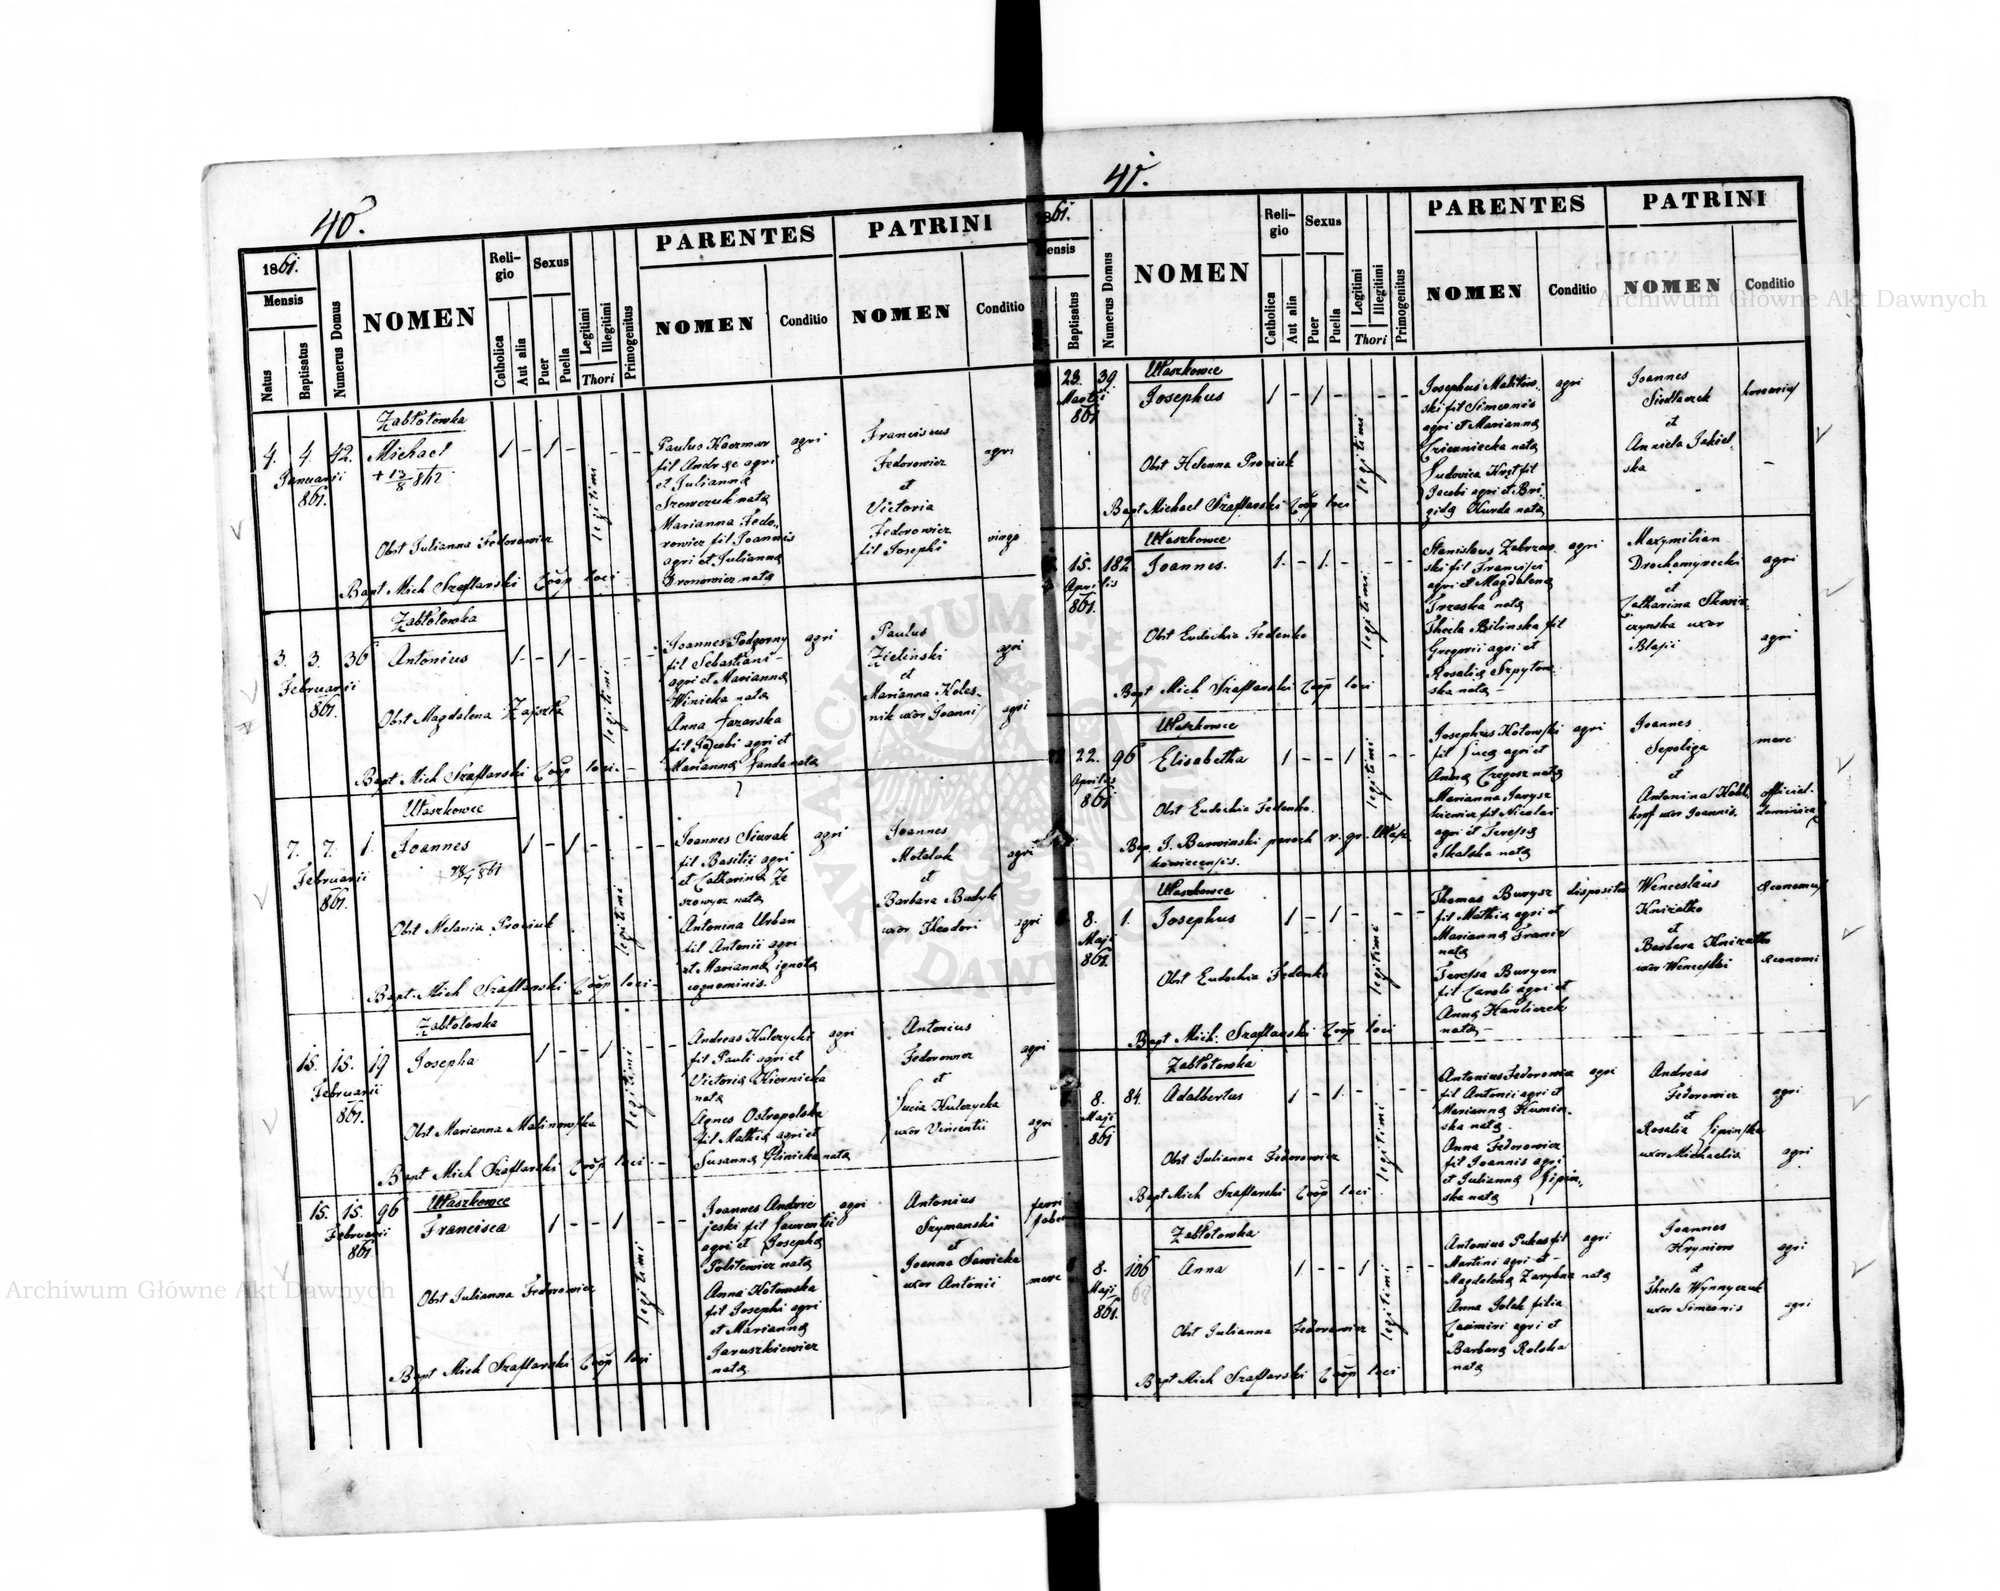 40.
1861.
Mensis
Natus
Baptisatus
Numerus Domus
NOMEN
Reli-
gio
Catholica
Aut alia
Sexus
Puer
Puella
Legitimi
Illegitimi
Thori
Primogenitus
PARENTES
NOMEN
Conditio
PATRINI
NOMEN
Conditio
Zabłotowka
4. 4. 42. Michael 1 - 1 - - -
Januarii
861.
+ 13/8 862
legitimi
Obst Julianna Fedorowicz
Bapt Mich Szaflarski Coop loci
Paulus Kaczmar agri
fil Andreae agri
et Julianna
Szewczuk nata
Marianna Fedo-
rowicz fil Joannis
agri et Julianna
Bronowicz nata
Franciscus
Fedorowicz agri
et
Victoria
Fedorowicz virgo
fil Josephi
Zabłotowka
3. 3. 36 Antonius 1 - 1 - - -
Februarii
861.
legitimi
Obst Magdalena
Bapt Mich Szaflarski Coop loci -
Joannes Podgorny agri
fil Sebastiani -
agri et Marianna
Winicka nata
Anna Lazarska
fil Jacobi agri et
Marianna Landa nata
Paulus
Zielinski agri
et
Marianna Koles-
nik uxor Joannis agri
Ułaszkowce
7. 7. 1. Joannes 1 - 1 - - -
Februarii
861.
legitimi
Obst Melania Prociuk
Bapt Mich Szaflarski Coop loci -
Joannes Siurak agri
fil Basilii agri
et Catharina
nata
Antonina Urban
fil Antonii agri
et Marianna ignota
cognominis.
Joannes
Motaluk agri
et
Barbara
uxor Theodori agri
Zabłotowka
15. 15. 19 Josepha 1 - - 1 - -
Februarii
861.
legitimi
Obst Marianna Malinowska
Bapt Mich Szaflarski Coop loci -
Andreas Kulczycki agri
fil Pauli agri et
Victoria Kiernicka
nata
Agnes Ostropolska
fil Mathia agri et
Susanna Glinicka nata
Antonius
Fedorowicz agri
et
Lucia Kulczycka
uxor Vincentii agri
Ułaszkowce
15. 15. 96 Francisca 1 - - 1 - -
Februarii
861
legitimi
Obst Julianna Fedorowicz
Bapt Mich Szaflarski Coop loci
Joannes Andrze agri
jeski fil Laurentii
agri et Josepha
Politewicz nata
Anna Kotowska
fil Josephi agri
et Marianna
Jaruszkiewicz
nata
Antonius
Szymanski
et
Joanna Sawicka
uxor Antonii merc
41.
1861.
Mensis
Baptisatus
Numerus Domus
NOMEN
Reli-
gio
Catholica
Aut alia
Sexus
Puer
Puella
Legitimi
Illegitimi
Thori
Primogenitus
PARENTES
NOMEN
Conditio
PATRINI
NOMEN
Conditio
Ułaszkowce
23. 39. Josephus 1 - 1 - - -
Martii
861
legitimi
Obst Helenna Prociuk
Bapt Michael Szaflarski Coop loci
Josephus agri
ski fil Simeonis
agri et Marianna
nata
Ludovica fil
Jacobi agri et Bri-
gida Kurda nata
Joannes
Siedlaczek
et
Anniela Jakiel-
ska -
Ułaszkowce
15. 182. Joannes. 1. - 1. - - -
Aprilis
861.
legitimi
Obst Eudochia Fedenko
Bapt Mich Szaflarski Coop loci
Stanislaus Zabrzew- agri
ski fil Francisci
agri et Magdalena
Trzaska nata
Thecla Bilinska fil
Gregorii agri et
Rosalia Szpytow-
ska nata -
Maxymilian
Drochomyrecki agri
et
Catharina
czynska uxor
Blasii agri
Ułaszkowce
22. 96 Elisabetha 1 - - 1 - -
Aprilis
861
legitimi
Obst Eudochia Fedenko.
Bap. J. Barwinski paroch r. gr. Ułasz-
kowecensis.
Josephus Kotowski agri
fil Luca agri et
Anna nata
Marianna Jarysz
kiewicz fil Nicolai
agri et Teressa
Skalska nata
Joannes
Sepoliga merc
et
Antonina
uxor Joannis.
Ułaszkowce
8. 1. Josephus 1 - 1 - - -
Maji
861.
legitimi
Obst Eudochia Fedenko
Bapt Mich. Szaflarski Coop loci
Thomas Burysz dispositor
fil Mathia agri et
Marianna
nata
Teressa Buryen
fil Caroli agri et
Anna Hawliczek
nata -
Wenceslaus oeconomus
Knizatko
et
Barbara Knizatko
uxor Wenceslai oeconomi
Zabłotowka
8. 84. Adalbertus 1 - 1 - - -
Maji
861
legitimi
Obst Julianna Fedorowicz
Bapt Mich Szaflarski Coop loci
Antonius Fedorowicz agri
fil Antonii agri et
Marianna Kumin-
ska nata
Anna Fedorowicz
fil Joannis agri
et Julianna Lipin-
ska nata
Andreas
Fedorowicz agri
et
Rosalia Lipinska
uxor Michaelis agri
Zabłotowka
8. 106 Anna 1 - - 1 - -
Maji
861.
legitimi
Obst Julianna Fedorowicz
Bapt Mich Szaflarski Coop loci
Antonius Pukas fil agri
Martini agri et -
Magdalena Zarybna nata
Anna Polak filia
Casimiri agri et
Barbara Rolska
nata
Joannes
Hryniow agri
et
Thecla Wynnyczuk
uxor Simeonis agri
Archiwum Główne Akt Dawnych
Archiwum Główne Akt Dawnych